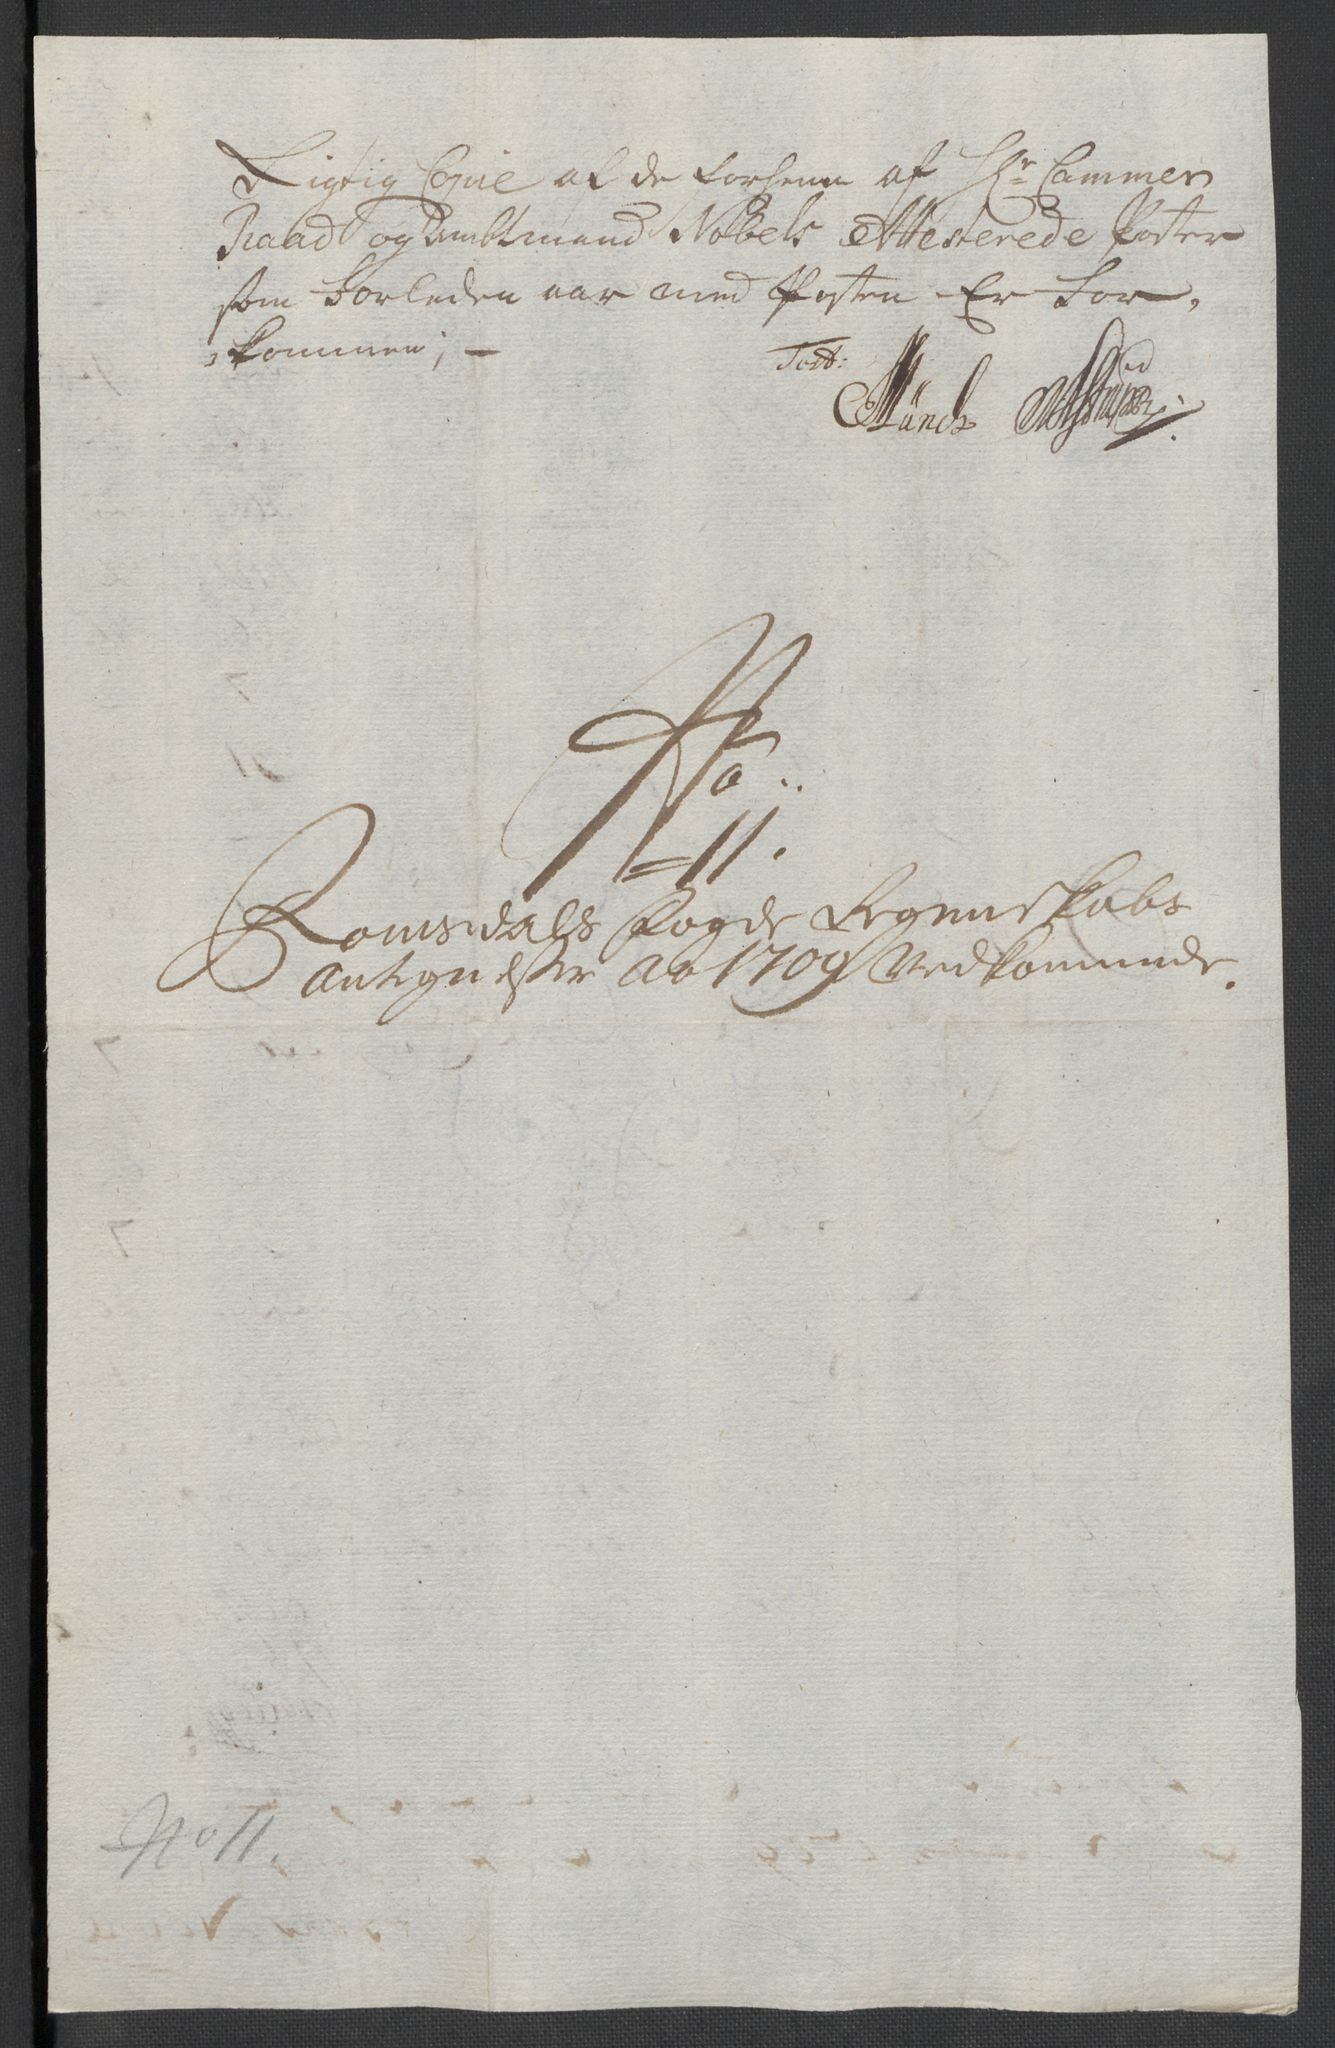 Rigtig Copie af de forhenn af Hr Cammer
Raad og Ambtmand Nobels Attesterede Poster
som forleden aar med Posten Er for,
,kommen; —
Test:
Münch
No ..
11.
Romsdals Fogde Regenskabs
Antegnelser Ao 1709 Vedkommende.
No 11.